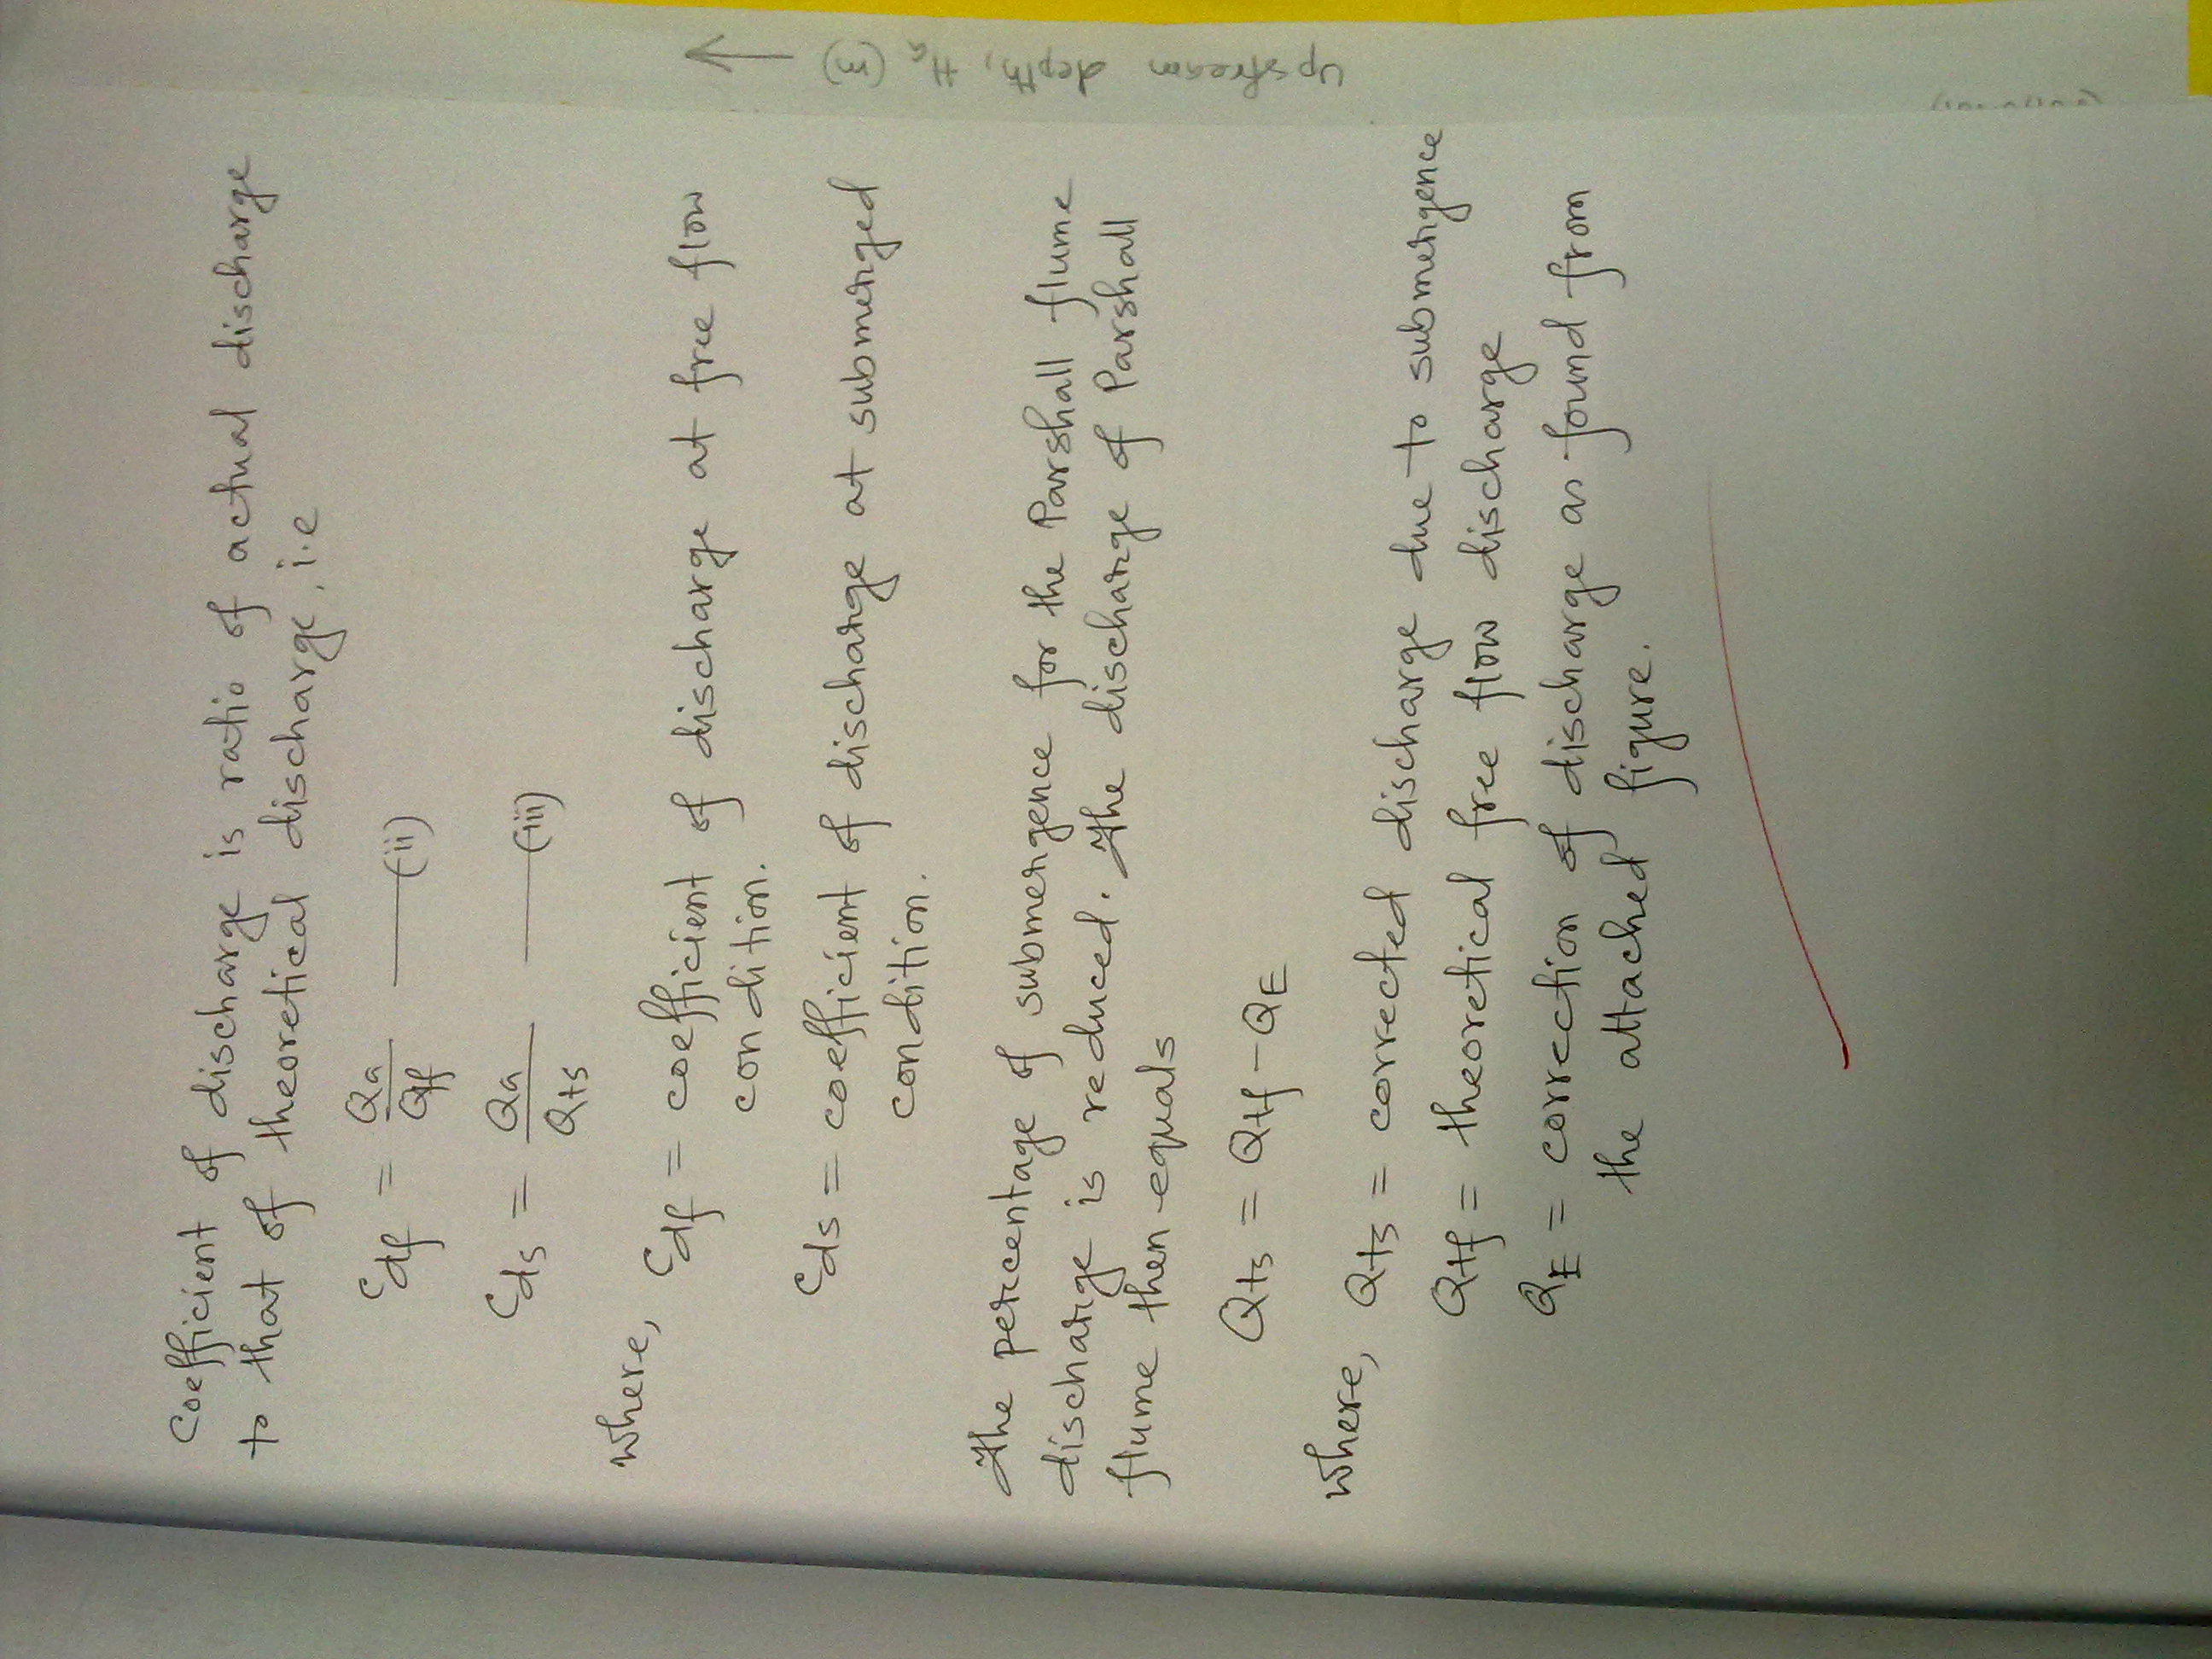 Coefficient of discharge is ratio of actual discharge
to that of theoretical discharge, i.e
Cdf = Qa/Qtf ——(ii)
Cds = Qa/Qts ——(iii)
where, Cdf = coefficient of discharge at free flow
condition.
Cds = coefficient of discharge at submerged
condition.
The percentage of submergence for the Parshall flume
discharge is reduced. The discharge of Parshall
flume then equals
Qts = Qtf - QE
where, Qts = corrected discharge due to submergence
Qtf = theoretical free flow discharge
QE = correction of discharge as found from
the attached figure.
Upstream depth, Ha (m)